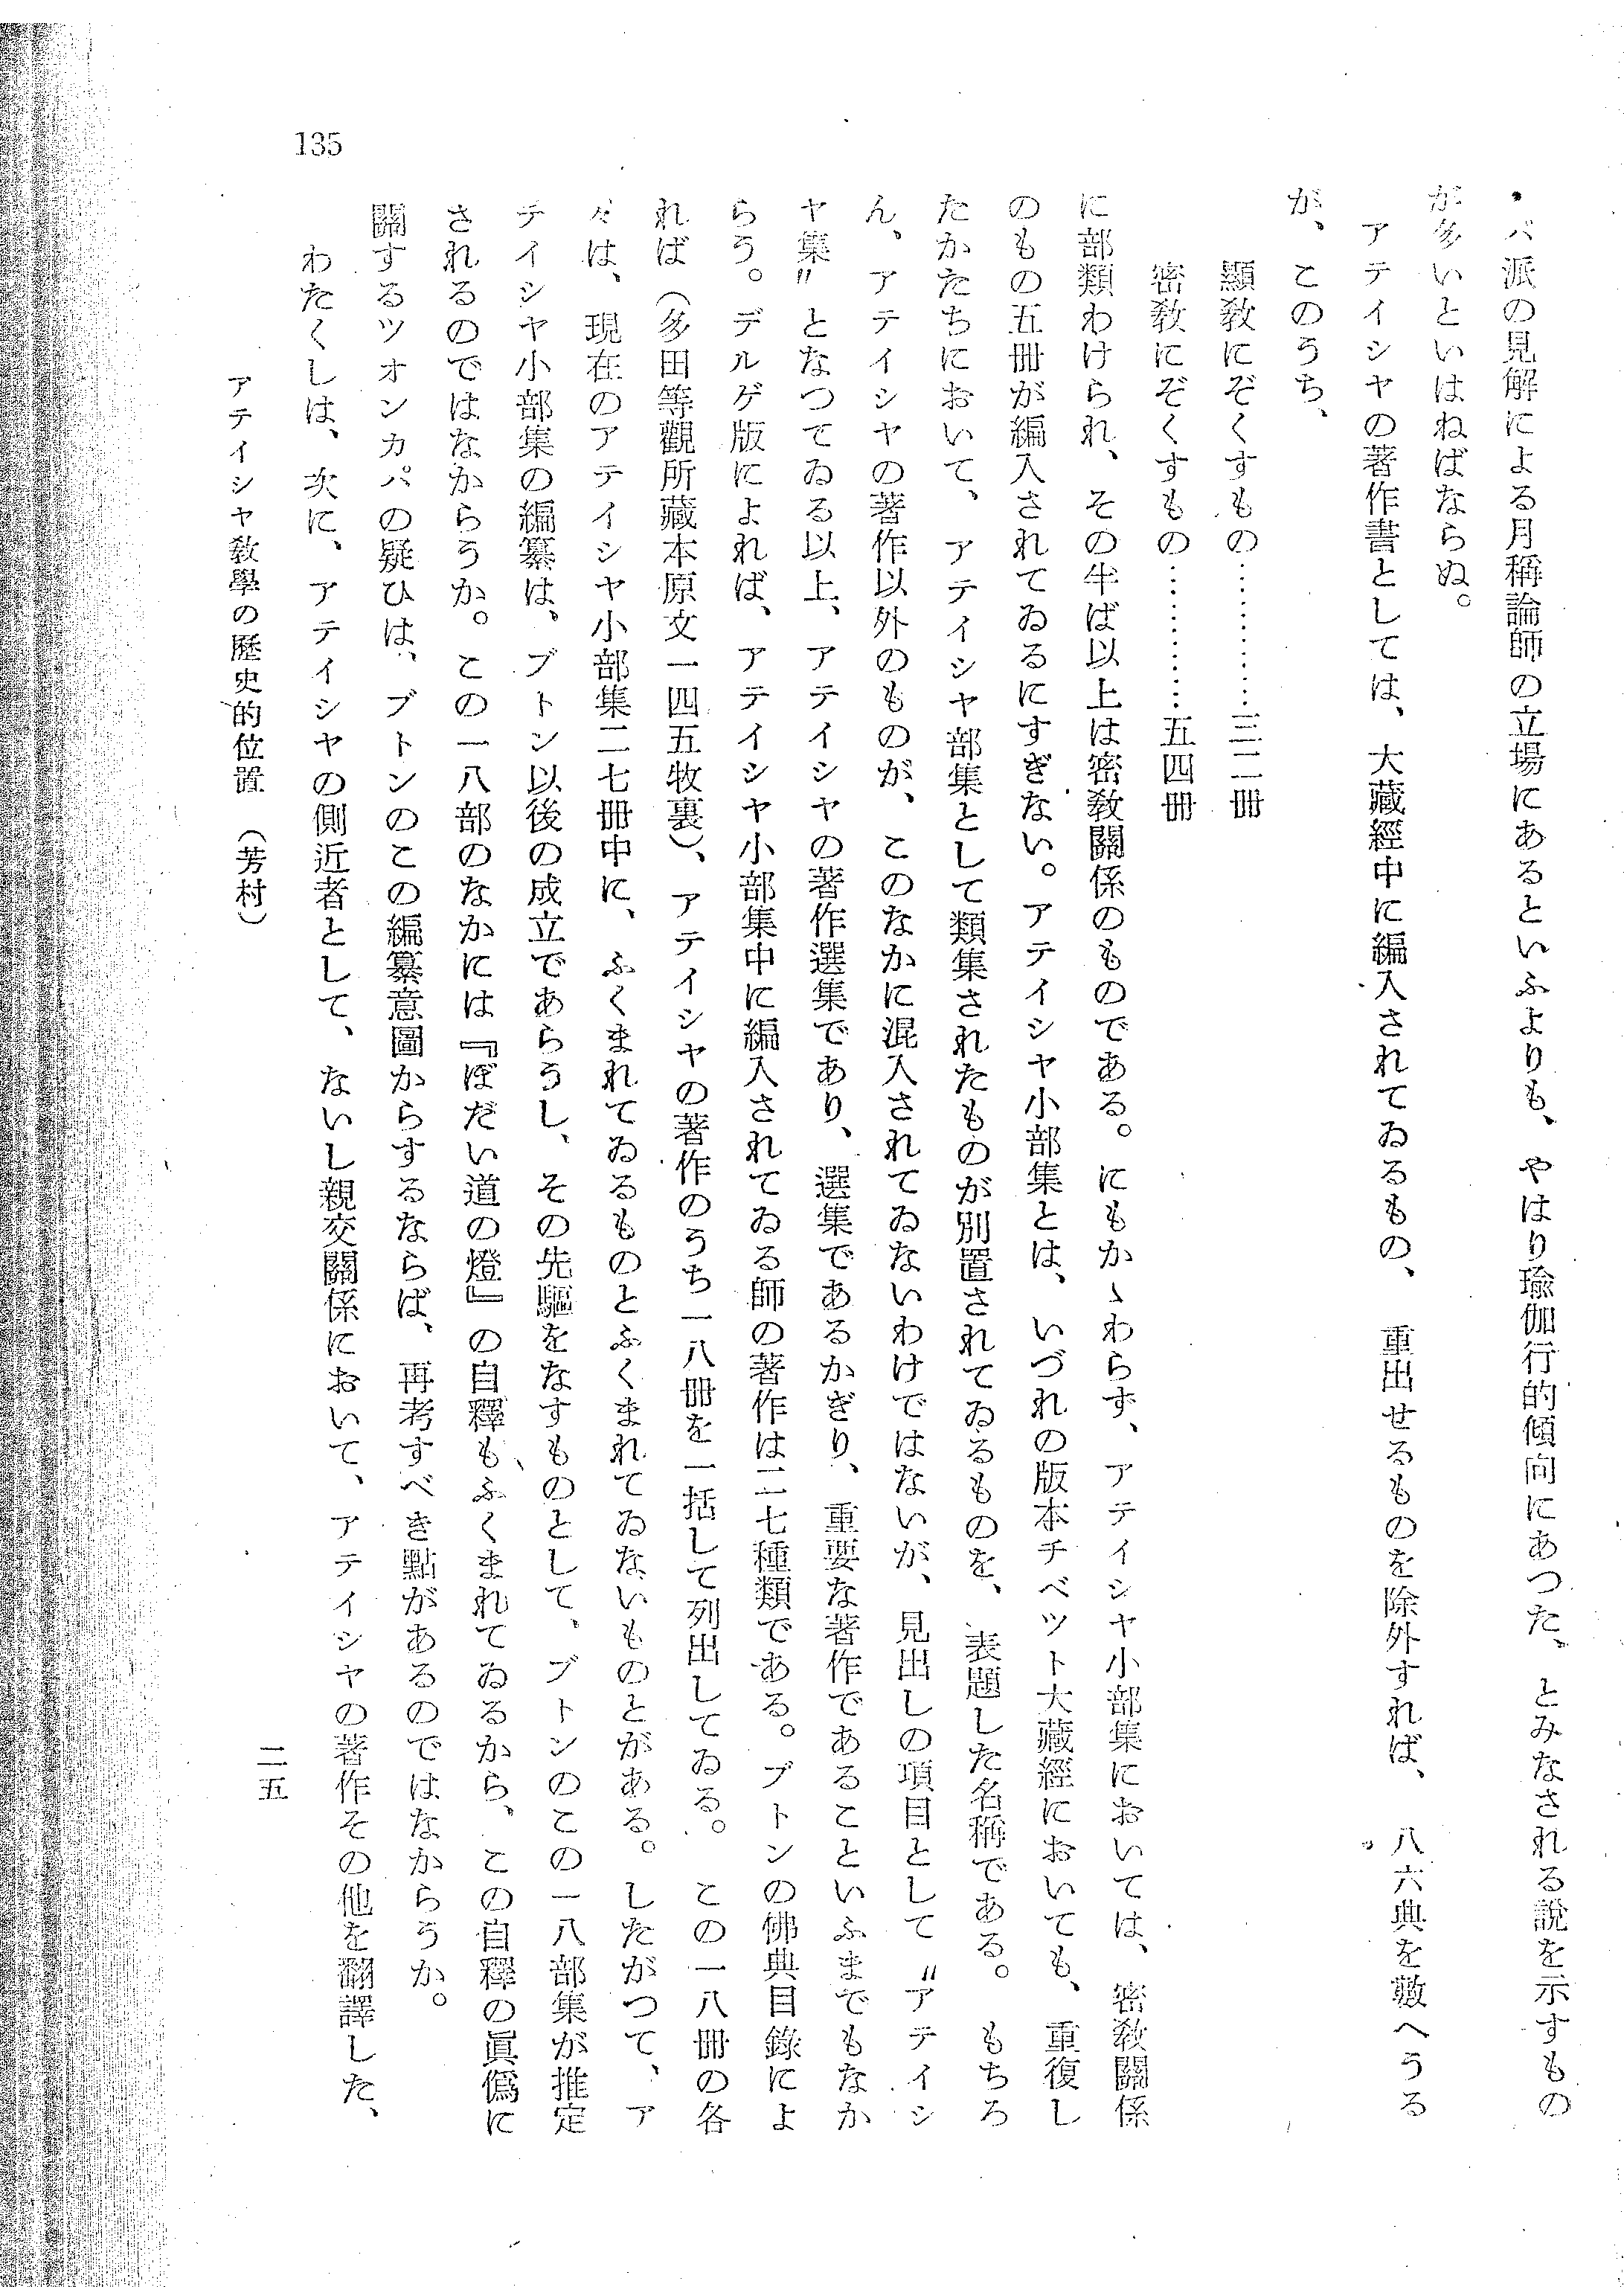 ・パ派の見解による月稱論師の立場にあるといふよりも、やはり瑜伽行的傾向にあつた、とみなされる說を示すもの
が多いといはねばならぬ。
アテイシヤの著作書としては、大藏經中に編入されてゐるもの、重出せるものを除外すれば、八六典を藪へうる
が、このうち、
顯敎にぞくすもの…………三二冊
密敎にぞくすもの…………五四冊
に部類わけられ、その半ば以上は密敎關係のものである。にもかゝわらず、アテイシヤ小部集においては、密敎關係
のもの五冊が編入されてゐるにすぎない。アテイシヤ小部集とは、いづれの版本チベツト大藏經においても、重復し
たかたちにおいて、アテイシヤ部集として類集されたものが別置されてゐるものを、表題した名稱である。もちろ
ん、アテイシヤの著作以外のものが、このなかに混入されてゐないわけではないが、見出しの項目として〃アテイシ
ヤ集〃となつてゐる以上、アテイシヤの著作選集であり、選集であるかぎり、重要な著作であることいふまでもなか
らう。デルゲ版によれば、アテイシヤ小部集中に編入されてゐる師の著作は二七種類である。ブトンの佛典目錄によ
れば（多田等觀所藏本原文一四五牧裏）、アテイシヤの著作のうち一八冊を一括して列出してゐる。この一八冊の各
々は、現在のアテイシヤ小部集二七冊中に、ふくまれてゐるものとふくまれてゐないものとがある。したがつて、ア
テイシヤ小部集の編纂は、ブトン以後の成立であらうし、その先驅をなすものとして、ブトンのこの一八部集が推定
されるのではなからうか。この一八部のなかには『ぼだい道の燈』の自釋もふくまれてゐるから、この自釋の眞僞に
關するツオンカパの疑ひは、ブトンのこの編纂意圖からするならば、再考すべき點があるのではなからうか。
わたくしは、次に、アテイシヤの側近者として、ないし親交關係において、アテイシヤの著作その他を翻譯した、
アテイシヤ敎學の歷史的位置　（芳村）
二五
135